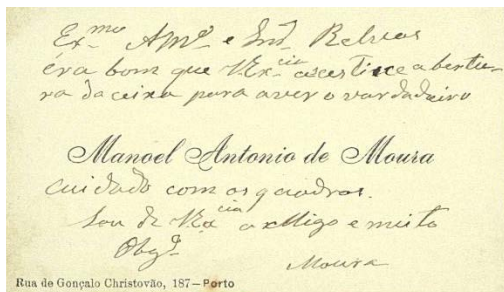 Ex.mo Amo e Snr. Relvas
éra bom que V Ex.cia acestice abertu-
ra da ceixa para aver o vardadeiro
Manoel Antonio de Moura
cuidado com os quadros.
Sou de V Ex.cia o e muito
Obgo.
Moura
Rua de Gonçalo Christovão, 187—Porto